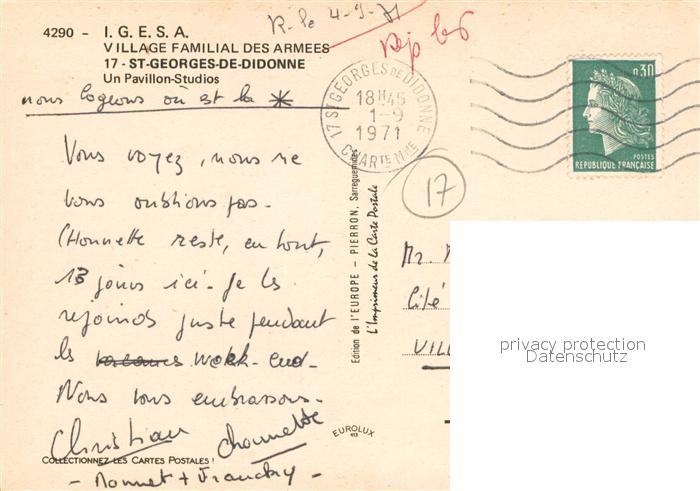 R. le 4-9-71
Rep
4290 - I. G. E. S. A.
VILLAGE FAMILIAL DES ARMEES
17 - ST-GEORGES-DE-DIDONNE
Un Pavillon-Studios
nous logeons où est la *
17 ST GEORGES DE DIDONNE
18H45
1-9
1971
CHARTE MME
0,30
POSTES
REPUBLIQUE FRANÇAISE
17
Vous voyez, nous ne
vous oublions pas.
reste, en tout,
13 jours ici. Je les
rejoinds juste pendant
les week-end.
Nous vous embrassons.
Christian
COLLECTIONNEZ LES CARTES POSTALES !
Edition de l'EUROPE - PIERRON, Sarreguemines
L'Imprimeur de la Carte Postale
EUROLUX
Mr.
Cité
VILL
privacy protection
Datenschutz